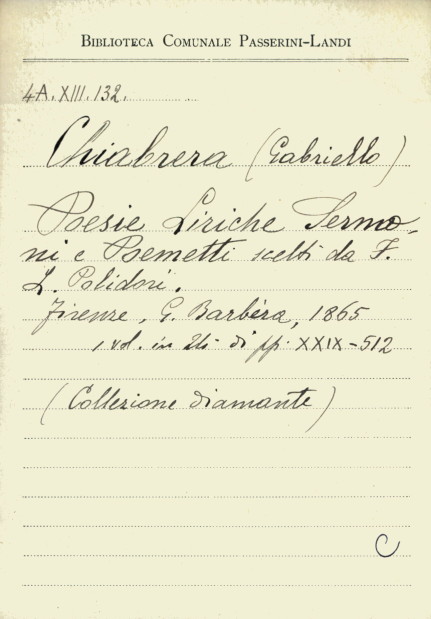 BIBLIOTECA COMUNALE PASSERINI-LANDI
4A.XIII.132.
Chiabrera (Gabriello)
Poesie Liriche Sermo-
ni e Poemetti scelti da F.
L. Polidori.
Firenze, G. Barbèra, 1865
1 vol. in 24° di pp. XXIX-512
(Collezione diamante)
C